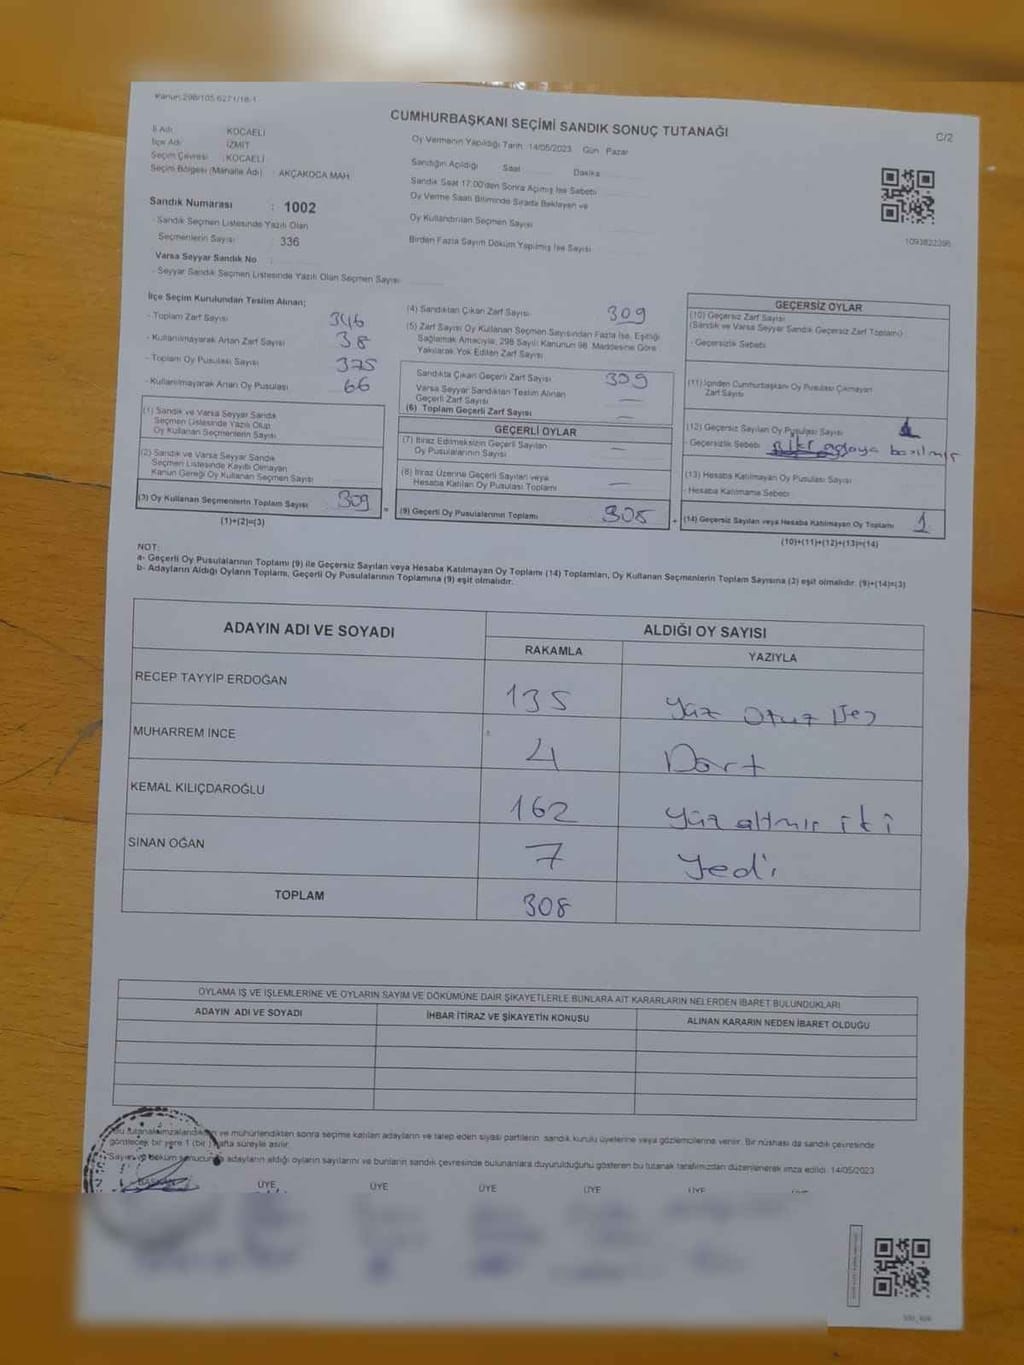 Kanun:298/105.6271/18-1
CUMHURBAŞKANI SEÇİMİ SANDIK SONUÇ TUTANAĞI
C/2
İl Adı KOCAELİ
İlçe Adı İZMİT
Seçim Çevresi : KOCAELİ
Seçim Bölgesi (Mahalle Adı) : AKÇAKOCA MAH.
Oy Vermenin Yapıldığı Tarih :14/05/2023 Gün Pazar
Sandığın Açıldığı Saat Dakika
Sandık Saat 17:00'den Sonra Açılmış İse Sebebi
Oy Verme Saati Bitiminde Sırada Bekleyen ve
Oy Kullandırılan Seçmen Sayısı
Birden Fazla Sayım Döküm Yapılmış İse Sayısı
Sandık Numarası : 1002
- Sandık Seçmen Listesinde Yazılı Olan
Seçmenlerin Sayısı 336
Varsa Seyyar Sandık No
- Seyyar Sandık Seçmen Listesinde Yazılı Olan Seçmen Sayısı
1093822396
İlçe Seçim Kurulundan Teslim Alınan;
- Toplam Zarf Sayısı 346
- Kullanılmayarak Artan Zarf Sayısı 38
- Toplam Oy Pusulası Sayısı 375
- Kullanılmayarak Artan Oy Pusulası 66
(1) Sandık ve Varsa Seyyar Sandık
Seçmen Listesinde Yazılı Olup
Oy Kullanan Seçmenlerin Sayısı
(2) Sandık ve Varsa Seyyar Sandık
Seçmen Listesinde Kaydı Olmayan
Kanun Gereği Oy Kullanan Seçmen Sayısı
(3) Oy Kullanan Seçmenlerin Toplam Sayısı 309
(1)+(2)=(3)
(4) Sandıktan Çıkan Zarf Sayısı 309
(5) Zarf Sayısı Oy Kullanan Seçmen Sayısından Fazla İse, Eşitliği
Sağlamak Amacıyla, 298 Sayılı Kanunun 98. Maddesine Göre
Yakılarak Yok Edilen Zarf Sayısı
Sandıkta Çıkan Geçerli Zarf Sayısı 309
Varsa Seyyar Sandıktan Teslim Alınan
Geçerli Zarf Sayısı —
(6) Toplam Geçerli Zarf Sayısı —
GEÇERLİ OYLAR
(7) İtiraz Edilmeksizin Geçerli Sayılan
Oy Pusulalarının Sayısı —
(8) İtiraz Üzerine Geçerli Sayılan veya
Hesaba Katılan Oy Pusulası Toplamı —
= (9) Geçerli Oy Pusulalarının Toplamı 308
GEÇERSİZ OYLAR
(10) Geçersiz Zarf Sayısı
(Sandık ve Varsa Seyyar Sandık Geçersiz Zarf Toplamı)
- Geçersizlik Sebebi
(11) İçinden Cumhurbaşkanı Oy Pusulası Çıkmayan
Zarf Sayısı
(12) Geçersiz Sayılan Oy Pusulası Sayısı 1
- Geçersizlik Sebebi basılmış
(13) Hesaba Katılmayan Oy Pusulası Sayısı
- Hesaba Katılmama Sebebi
+ (14) Geçersiz Sayılan veya Hesaba Katılmayan Oy Toplamı 1
(10)+(11)+(12)+(13)=(14)
NOT:
a- Geçerli Oy Pusulalarının Toplamı (9) ile Geçersiz Sayılan veya Hesaba Katılmayan Oy Toplamı (14) Toplamları, Oy Kullanan Seçmenlerin Toplam Sayısına (3) eşit olmalıdır. (9)+(14)=(3)
b- Adayların Aldığı Oyların Toplamı, Geçerli Oy Pusulalarının Toplamına (9) eşit olmalıdır.
ADAYIN ADI VE SOYADI
ALDIĞI OY SAYISI
RAKAMLA YAZIYLA
RECEP TAYYİP ERDOĞAN 135 Yüz Otuz Beş
MUHARREM İNCE 4 Dört
KEMAL KILIÇDAROĞLU 162 Yüz altmış iki
SİNAN OĞAN 7 Yedi
TOPLAM 308
OYLAMA İŞ VE İŞLEMLERİNE VE OYLARIN SAYIM VE DÖKÜMÜNE DAİR ŞİKAYETLERLE BUNLARA AİT KARARLARIN NELERDEN İBARET BULUNDUKLARI
ADAYIN ADI VE SOYADI
İHBAR İTİRAZ VE ŞİKAYETİN KONUSU
ALINAN KARARIN NEDEN İBARET OLDUĞU
ve mühürlendikten sonra seçime katılan adayların ve talep eden siyasi partilerin sandık kurulu üyelerine veya gözlemcilerine verilir. Bir nüshası da sandık çevresinde
görülecek bir yere 1 (bir) hafta süreyle asılır.
adayların aldığı oyların sayılarını ve bunların sandık çevresinde bulunanlara duyurulduğunu gösteren bu tutanak tarafımızdan düzenlenerek imza edildi. 14/05/2023
BAŞKAN ÜYE ÜYE ÜYE ÜYE ÜYE